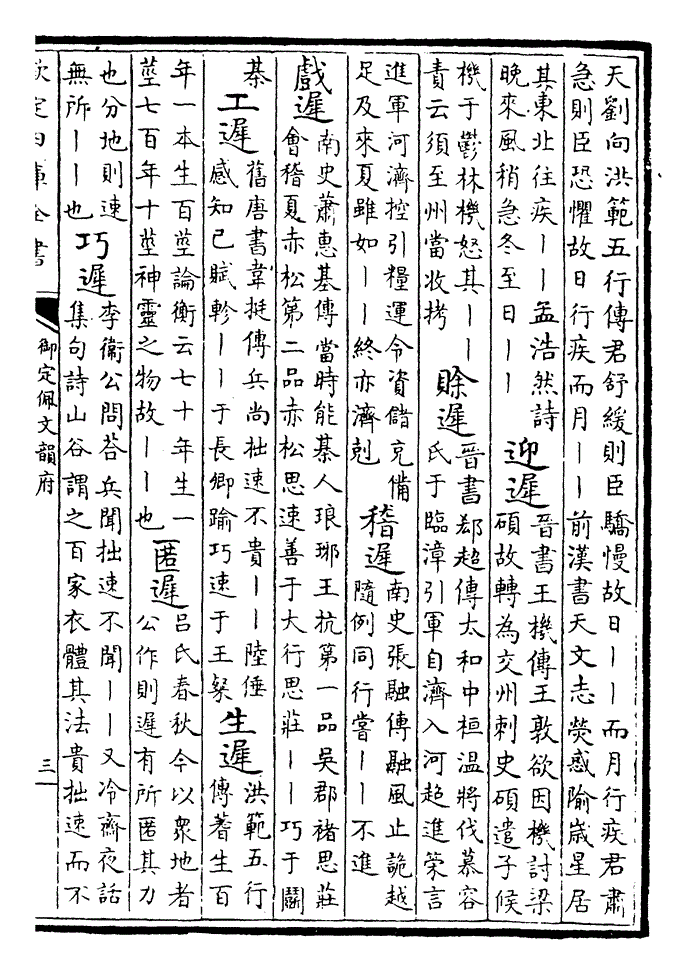 天劉向洪範五行傳君舒緩則臣驕慢故日丨丨而月行疾君肅
急則臣恐懼故日行疾而月丨丨前漢書天文志熒惑隃歲星居
其東北往疾丨丨孟浩然詩
晚來風稍急冬至日丨丨
迎遲
晉書王機傳王敦欲因機討梁
碩故轉為交州刺史碩遣子候
機于鬱林機怒其丨丨
責云須至州當收拷
賖遲
晉書郄超傳太和中桓溫將伐慕容
氏于臨漳引軍自濟入河超進策言
進軍河濟控引糧運令資儲充備
足及來夏雖如丨丨終亦濟剋
稽遲
南史張融傳融風止詭越
隨例同行嘗丨丨不進
戲遲
南史蕭惠基傳當時能碁人琅琊王抗第一品吳郡褚思莊
會稽夏赤松第二品赤松思速善于大行思莊丨丨巧于鬬
碁
工遲
舊唐書韋挺傳兵尚拙速不貴丨丨陸倕
感知己賦軫丨丨于長卿踰巧速于王粲
生遲
洪範五行
傳蓍生百
年一本生百莖論衡云七十年生一
莖七百年十莖神靈之物故丨丨也
匿遲
吕氏春秋今以衆地者
公作則遲有所匿其力
也分地則速
無所丨丨也
巧遲
李衞公問荅兵聞拙速不聞丨丨又冷齋夜話
集句詩山谷謂之百家衣體其法貴拙速而不
欽定四庫全書
御定佩文韻府
三